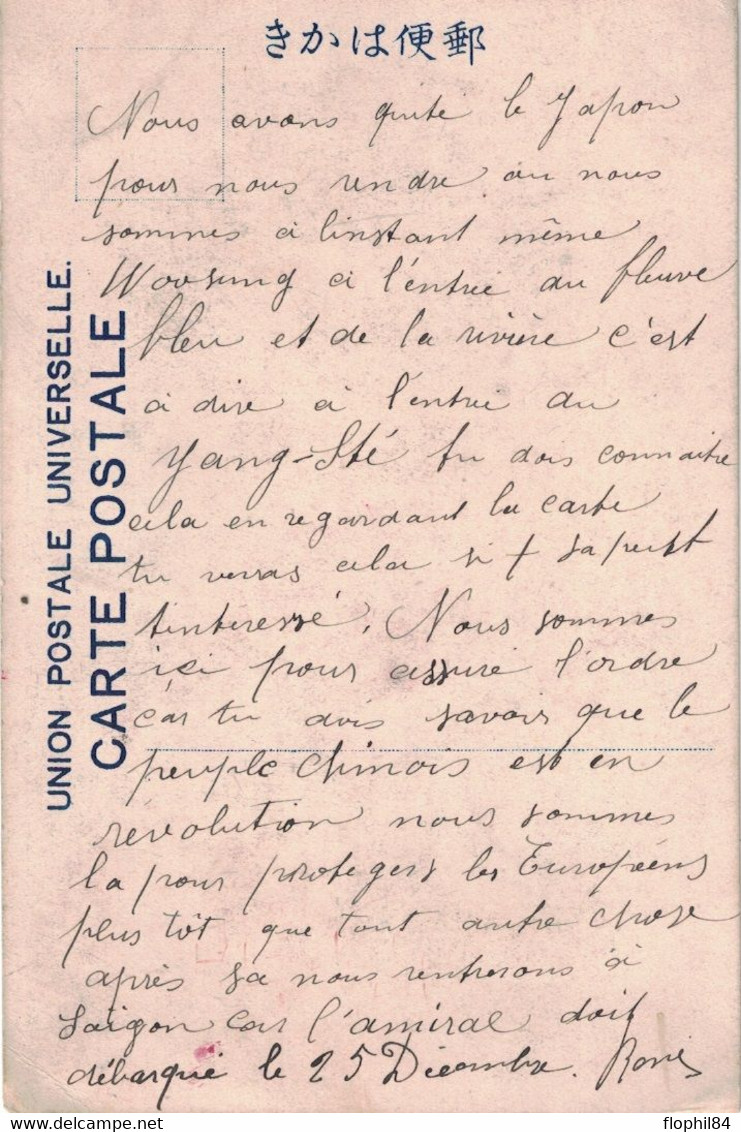 きかは便郵
UNION POSTALE UNIVERSELLE.
CARTE POSTALE
Nous avons quité le Japon
pour nous rendre ou nous
sommes à linstant même
Woosung à l'entrée du fleuve
bleu et de la rivière c'est
à dire à l'entrée du
Yang-Sté tu dois connaitre
cela en regardant la carte
tu verras cela si sa peut
tinteressé. Nous sommes
içi pour assuré l'ordre
car tu dois savoir que le
peuple chinois est en
révolution nous sommes
la pour protegers les Européens
plus tôt que tout autre chose
après sa nous rentrerons à
Saigon car l'amiral doit
débarqué le 25 Décembre.
delcampe.net
flophil84